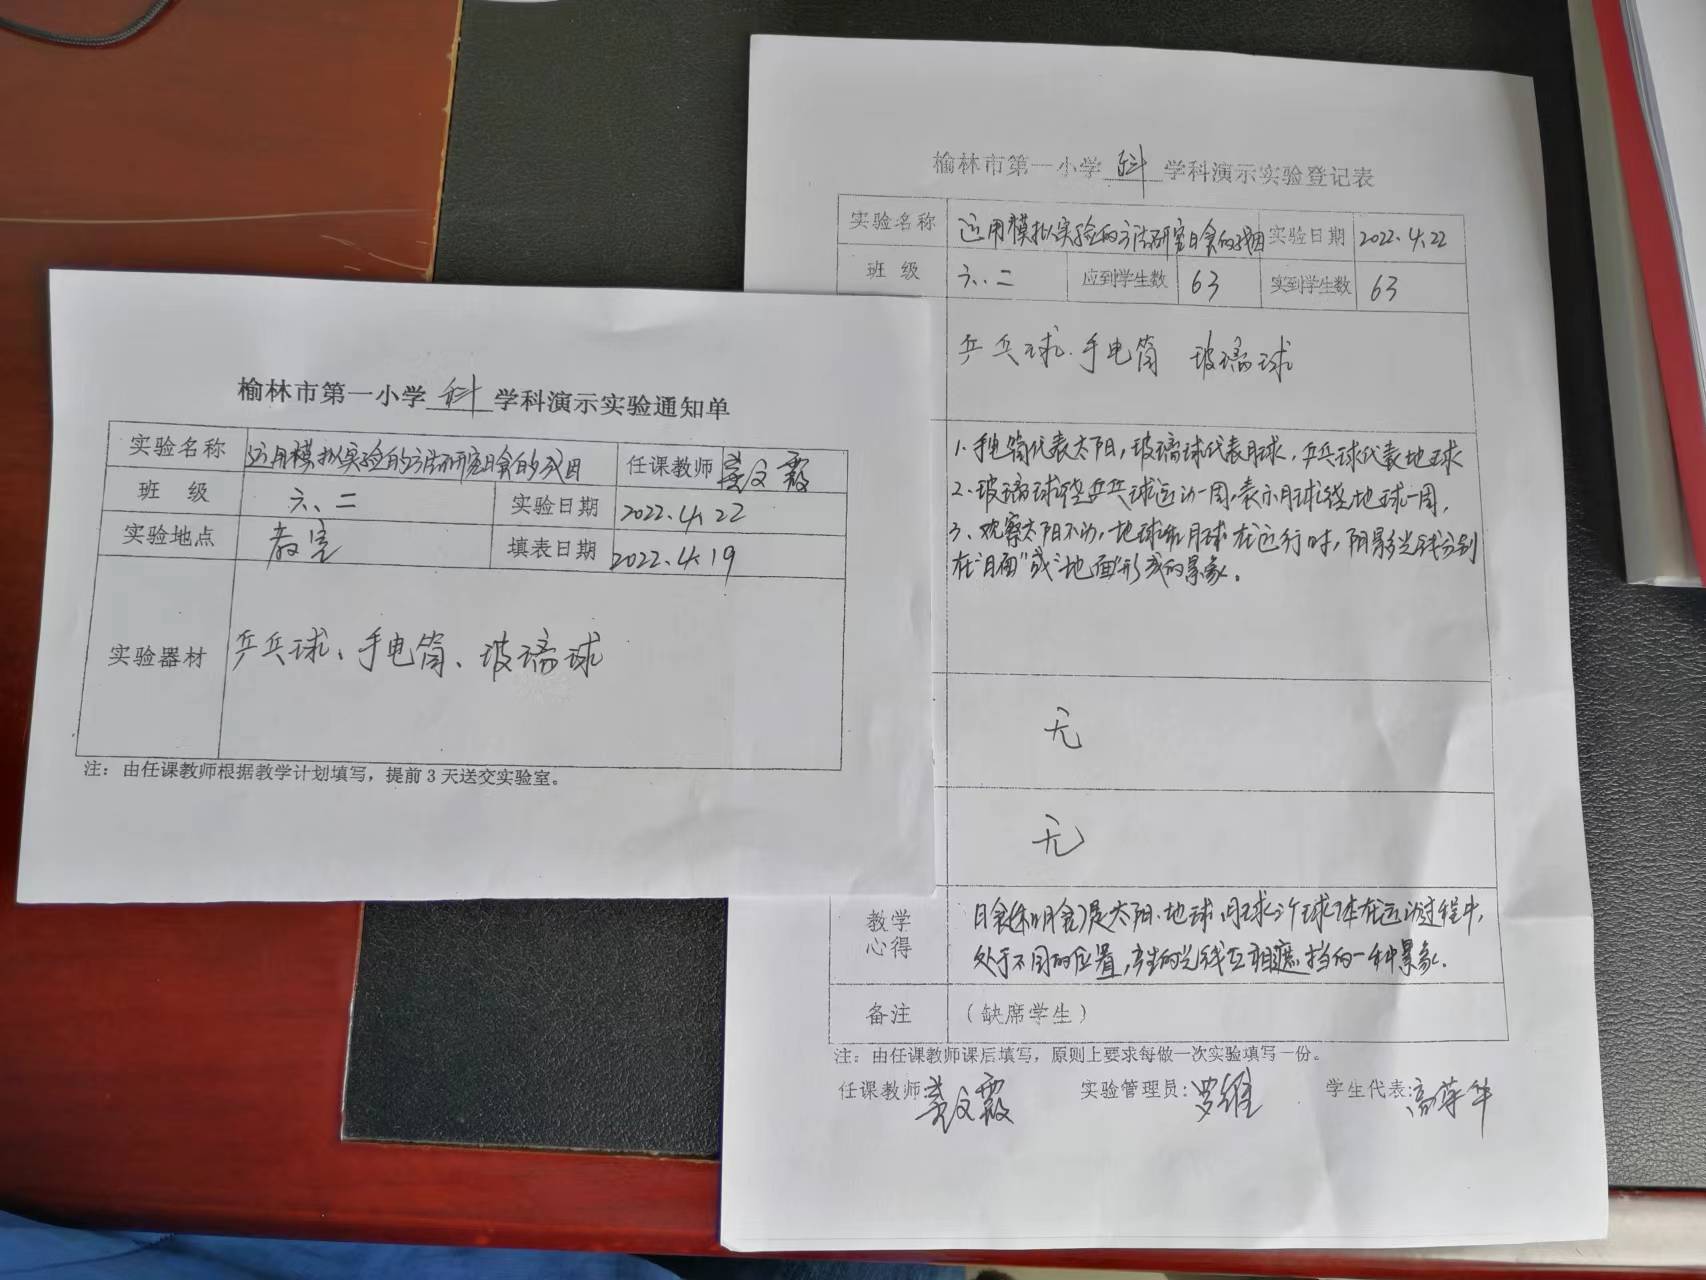 榆林市第一小学 科 学科演示实验通知单
实验名称 运用模拟实验的方法研究日食的成因 任课教师 霞
班 级 六、二 实验日期 2022.4.22
实验地点 教室 填表日期 2022.4.19
实验器材 乒乓球、手电筒、玻璃球
注：由任课教师根据教学计划填写，提前3天送交实验室。
榆林市第一小学 科 学科演示实验登记表
实验名称 运用模拟实验的方法研究日食的成因 实验日期 2022.4.22
班 级 六、二 应到学生数 63 实到学生数 63
乒乓球、手电筒 玻璃球
1、手电筒代表太阳，玻璃球代表月球，乒乓球代表地球
2、玻璃球绕乒乓球运动一周，表示月球绕地球一周，
3、观察太阳不动，地球和月球在运行时，阴影光线分别
在“日面”或“地面”形成的景象。
无
无
教学心得 日食（和月食）是太阳、地球、月球三个球体在运动过程中，
处于不同的位置，产生的光线互相遮挡的一种景象。
备注 （缺席学生）
注：由任课教师课后填写，原则上要求每做一次实验填写一份。
任课教师: 霞 实验管理员: 罗维 学生代表: 高华